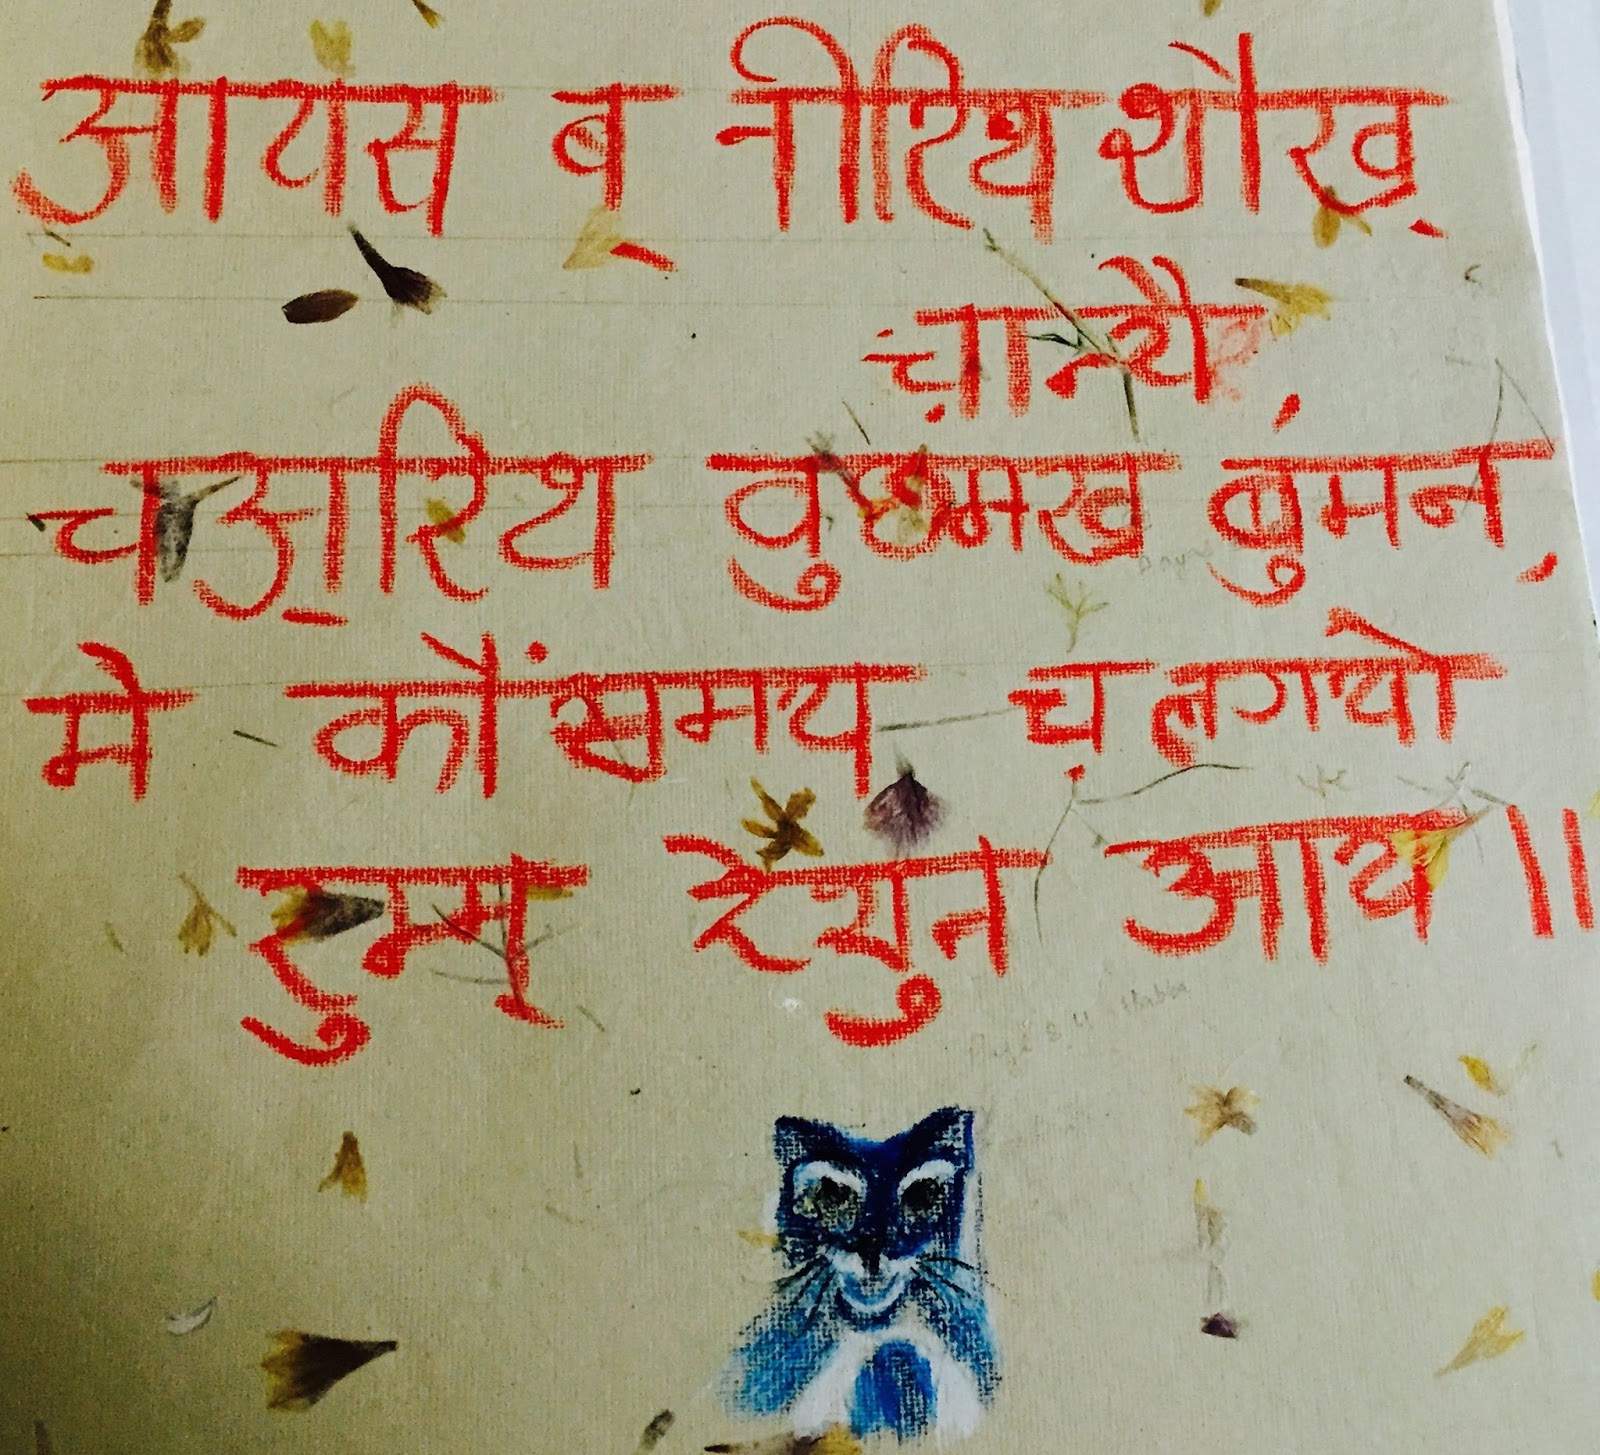 आयस ब् नीरिथ शौख़
च़ान्यै
चा॒रिथ वुछमख बुंमन॒
मे कौंसमय च़लगयो
रुम्म् रैयुन आय ॥